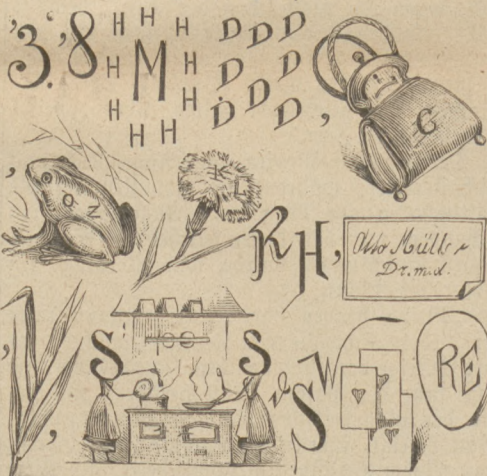 '3.'8 H H H H H M H H H H H D D D D D D D D D ,
G
,
O N
K L
R H , Otto Müller
Dr. med.
, , S S W RE